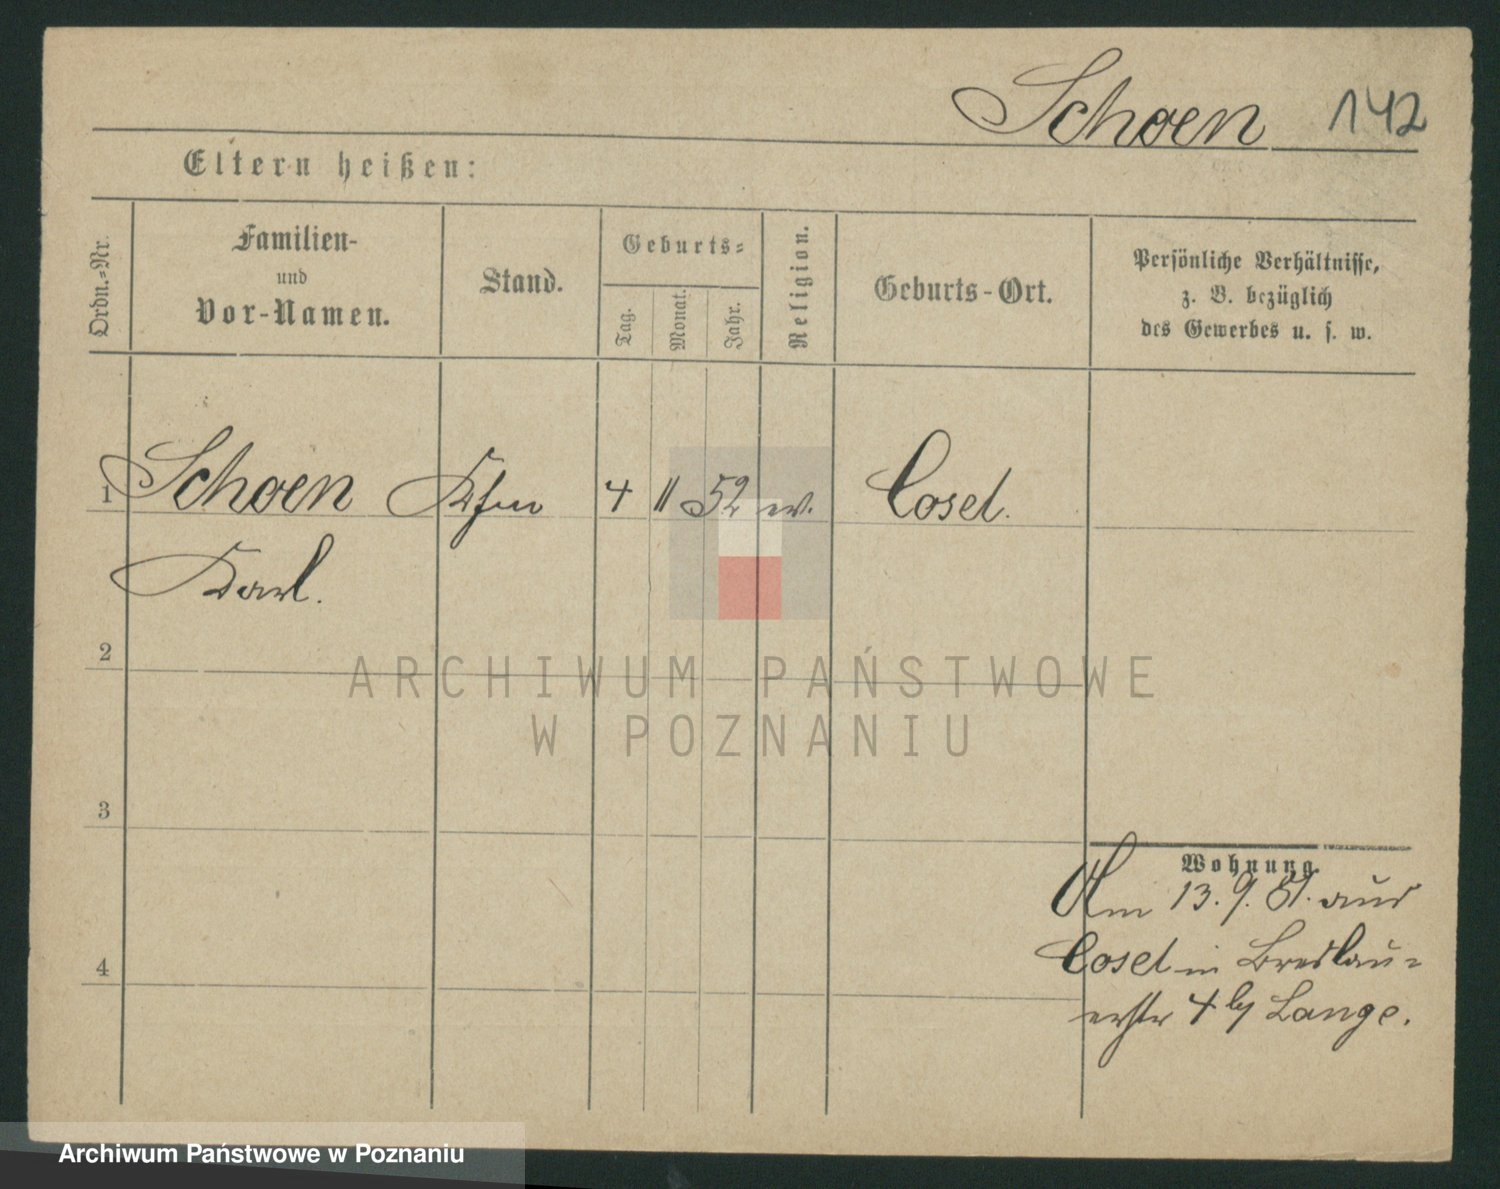 Schoen 142
Eltern heißen:
Ordn.=Nr.
Familien-
und
Vor-Namen.
Stand.
Geburts=
Tag.
Monat.
Jahr.
Religion.
Geburts-Ort.
Persönliche Verhältnisse,
z. B. bezüglich
des Gewerbes u. s. w.
1 Schoen Kfm 4 11 52 ev. Cosel.
Karl.
2
ARCHIWUM PAŃSTWOWE
W POZNANIU
3
Wohnung
Am 13. 9. 81. aus
Cosel in Breslau=
erstr 4 by Lange.
4
Archiwum Państwowe w Poznaniu